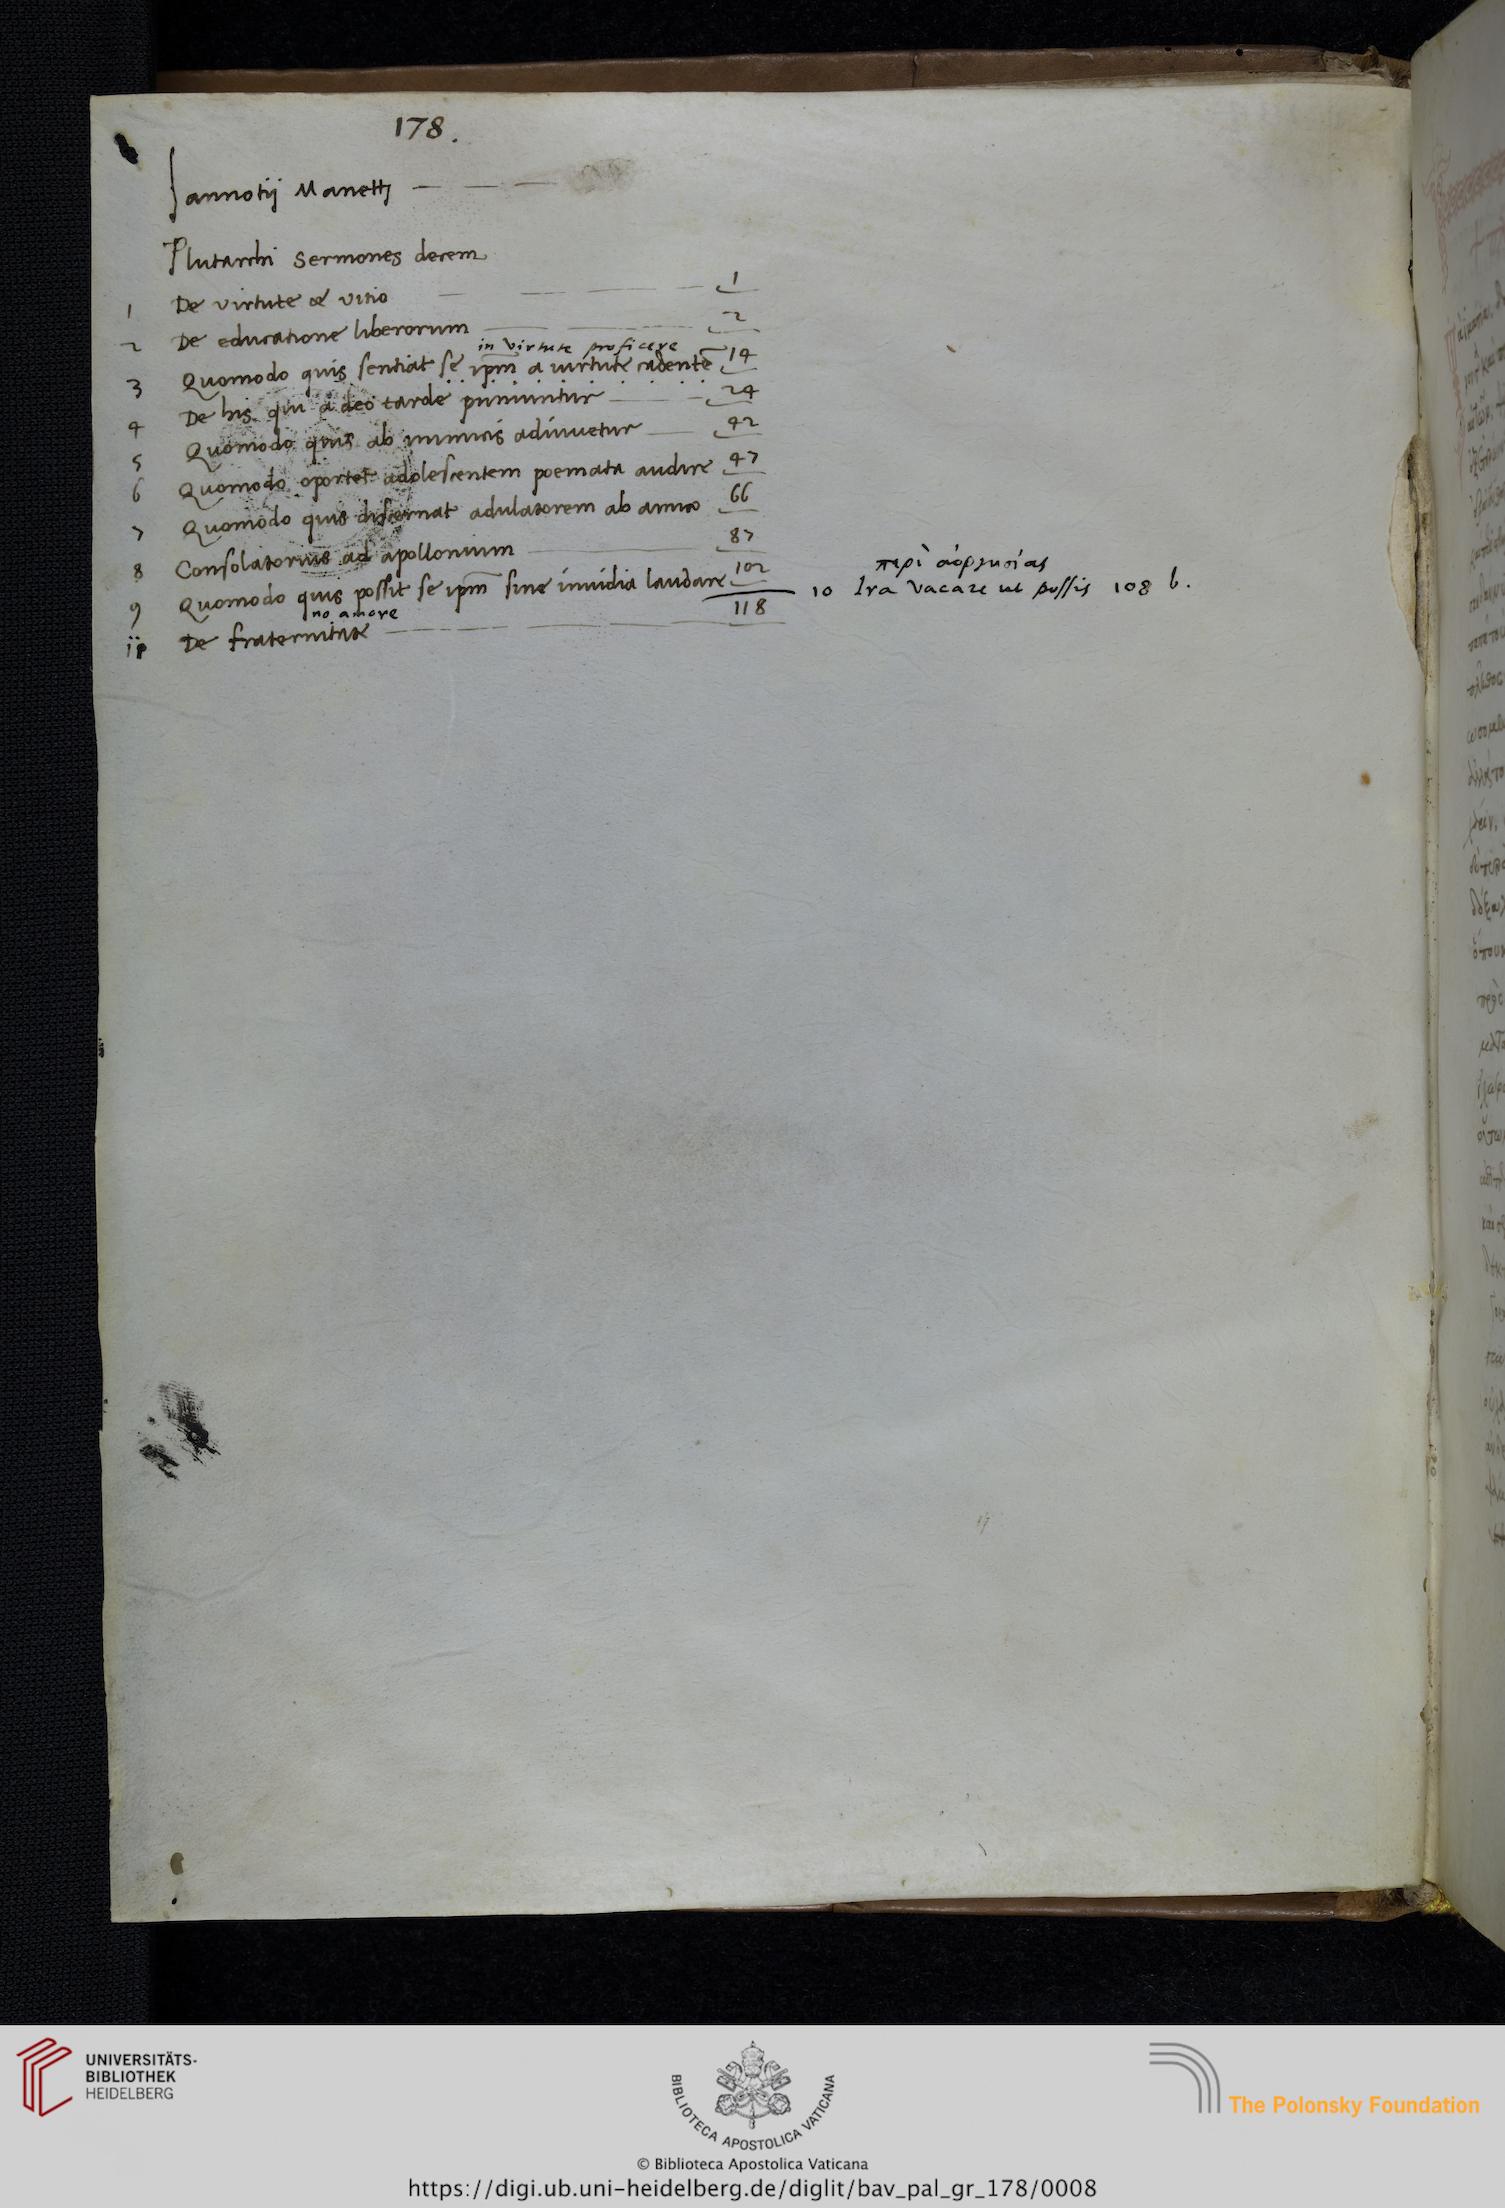 178.
Jannotij Manetti
Plutarchi Sermones decem
1 De virtute & vitio 1
2 De educatione liberorum 2
in virtute proficere
3 Quomodo quis sentiat se ipm̅ a virtute cadentē 14
4 De his qui a deo tarde puniuntur 24
5 Quomodo quis ab inimicis adiuvetur 42
6 Quomodo oportet adolescentem poemata audire 47
7 Quomodo quis discernat adulatorem ab amico 66
8 Consolatorius ad apollonium 87
9 Quomodo quis possit se ipm̅ sine invidia laudare 102
περὶ ἀοργησίας
10 Ira vacare ut possis 108 b.
no amore
11 De fraternitate 118
UNIVERSITÄTS-
BIBLIOTHEK
HEIDELBERG
BIBLIOTECA APOSTOLICA VATICANA
The Polonsky Foundation
© Biblioteca Apostolica Vaticana
https://digi.ub.uni-heidelberg.de/diglit/bav_pal_gr_178/0008